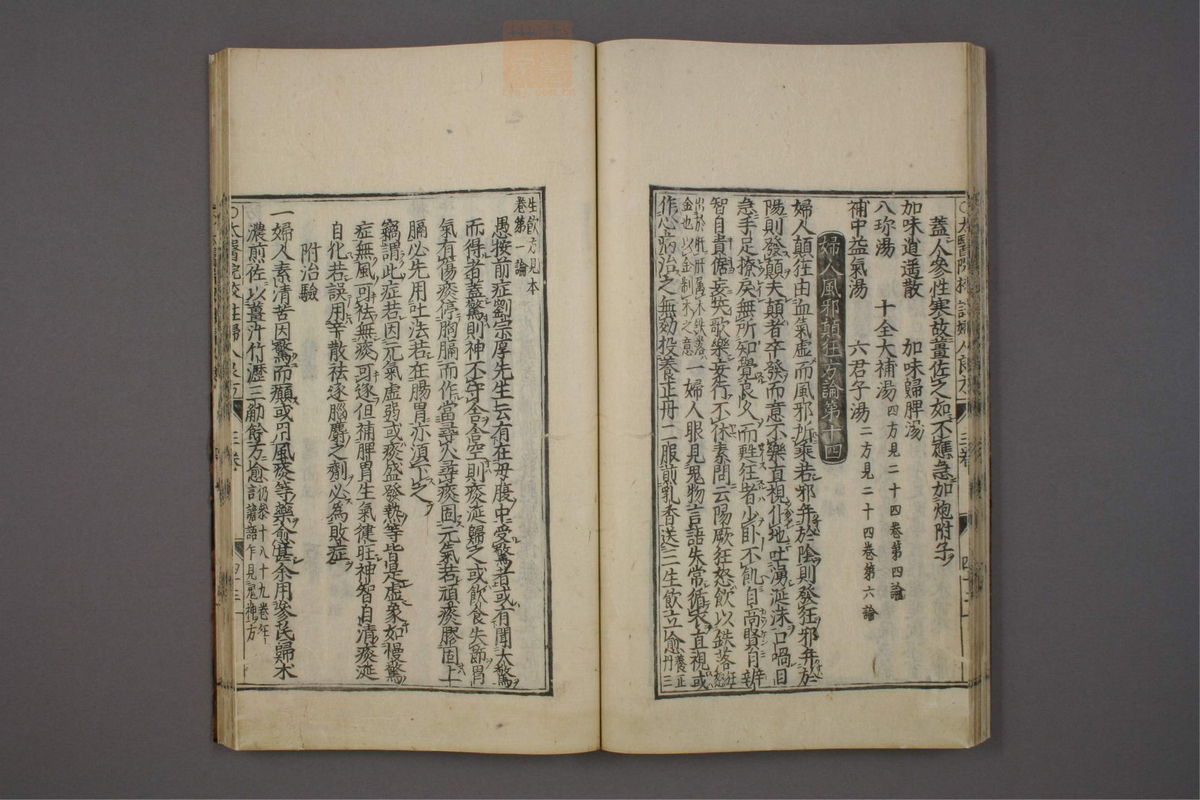 蓋人參性寒故薑佐之如不應急加炮附子
加味逍遙散　加味歸脾湯
八珍湯　十全大補湯四方見二十四卷第四論
補中益氣湯　六君子湯二方見二十四卷第六論
婦人風邪顛狂方論第十四
婦人顛狂由血氣虛而風邪所乘若邪并於陰則發狂邪并於
陽則發顛夫顛者卒發而意不樂直視仆地吐湧涎沫口喎目
急手足撩戾無所知覺良久而甦狂者少臥不飢自高賢自辨
智自貴倨妄笑歌樂妄行不休素問云陽厥狂怒飲以鉄落狂怒
出於肝肝属木鉄落金也以金制木之意一婦人眼見鬼物言語失常循衣直視或
作心病治之無効投養正丹二服煎乳香送三生飲立愈養正丹三
生飲方見本
卷第一論
愚按前症劉宗厚先生云有在母腹中受驚者或有聞大驚
而得者蓋驚則神不守舍舍空則痰涎歸之或飲食失節胃
氣有傷痰停胸膈而作當尋火尋痰固元氣若頑痰膠固上
膈必先用吐法若在腸胃亦須下之
竊謂此症若因元氣虛弱或痰盛發熱等皆是虛象如慢驚
症無風可祛無痰可逐但補脾胃生氣健旺神智自清痰涎
自化若誤用辛散祛逐腦麝之劑必為敗症
附治驗
一婦人素清苦因驚而癲或用風痰等藥愈甚余用參芪歸朮
濃煎佐以薑汁竹瀝三觔餘方愈
三卷